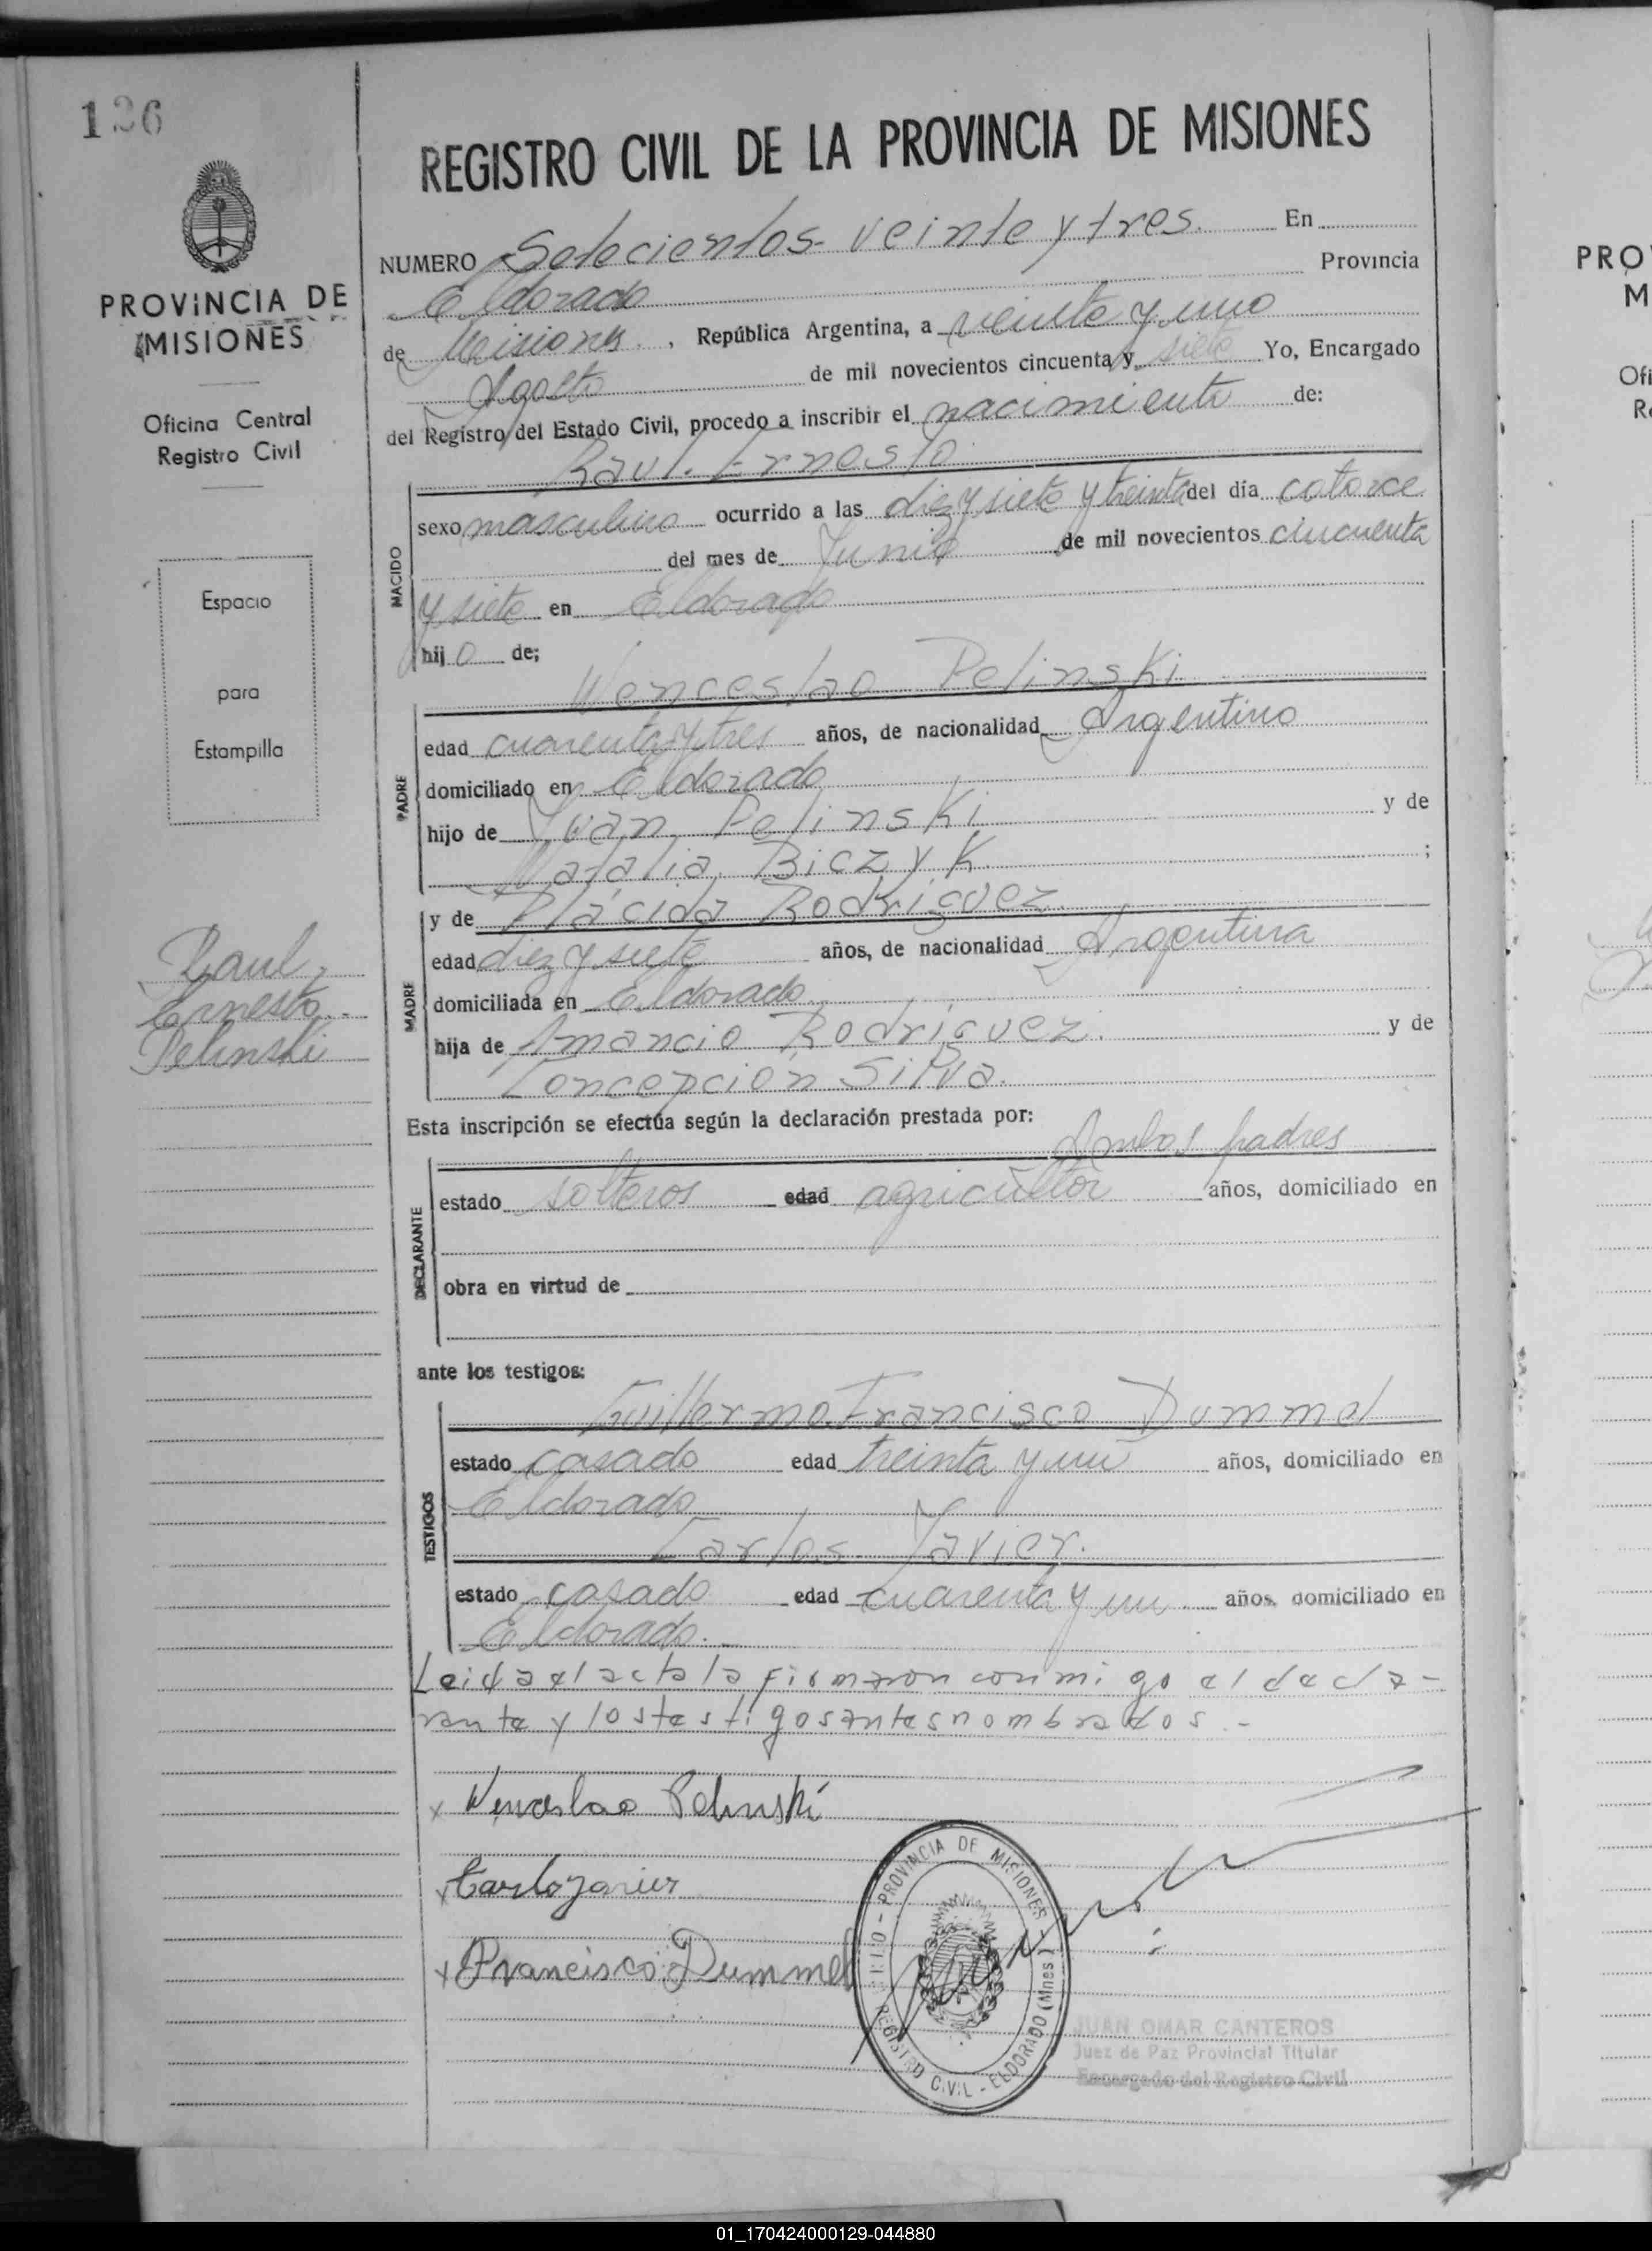 126
PROVINCIA DE
MISIONES
Oficina Central
Registro Civil
Espacio
para
Estampilla
Raul
Ernesto
Pelinski
REGISTRO CIVIL DE LA PROVINCIA DE MISIONES
NUMERO Setecientos veinte y tres. En
Eldorado Provincia
de Misiones, República Argentina, a veinte y uno
Agosto de mil novecientos cincuenta y siete Yo, Encargado
del Registro del Estado Civil, procedo a inscribir el nacimiento de:
Raul Ernesto
NACIDO
sexo masculino ocurrido a las diez y siete y treinta del día catorce
del mes de Junio de mil novecientos cincuenta
y siete en Eldorado
hijo de;
Wenceslao Pelinski
PADRE
edad cuarenta y tres años, de nacionalidad Argentino
domiciliado en Eldorado
hijo de Juan Pelinski y de
Natalia Biczyk ;
MADRE
y de Plácida Rodriguez
edad diez y siete años, de nacionalidad Argentina
domiciliada en Eldorado
hija de Amancio Rodriguez. y de
Concepcion Silva.
Esta inscripción se efectúa según la declaración prestada por:
Ambos padres
DECLARANTE
estado solteros edad agricultor años, domiciliado en
obra en virtud de
ante los testigos:
Guillermo Francisco Dummel
TESTIGOS
estado casado edad treinta y un años, domiciliado en
Eldorado
Carlos Javier.
estado casado edad cuarenta y un años, domiciliado en
Eldorado.
Leida el acta la firmaron conmigo el decla-
rante y los testigos antes nombrados.-
x Wenceslao Pelinski
x Carlo Javier
x Francisco Dummel
PROVINCIA DE MISIONES
REGISTRO CIVIL - ELDORADO (Mnes.)
JUAN OMAR CANTEROS
Juez de Paz Provincial Titular
Encargado del Registro Civil
PRO
M
Ofi
R
01_170424000129-044880